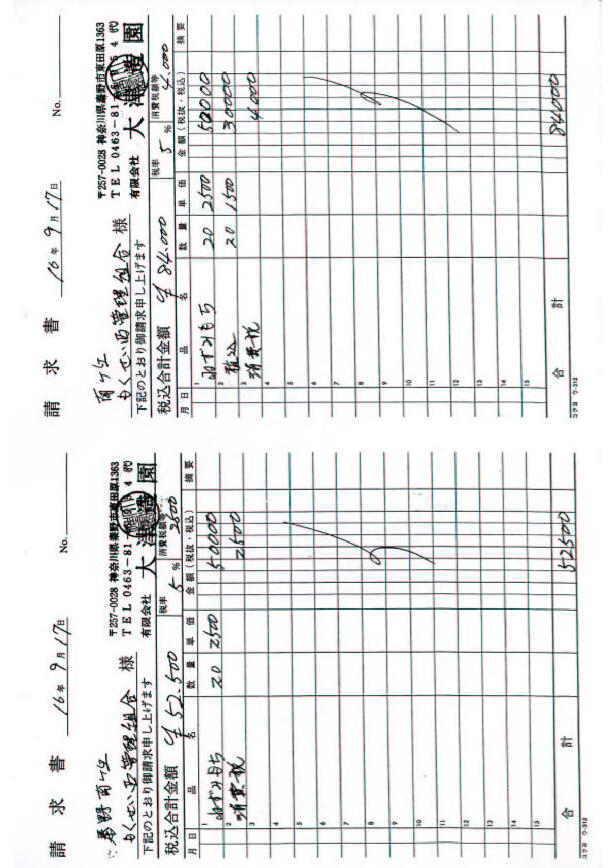 請求書
16年 9月17日
No.
南ケ丘
もくせい西管理組合 様
下記のとおり御請求申し上げます
〒257-0028 神奈川県秦野市東田原1363
TEL 0463-81-
有限会社 大津造園
税込合計金額 ¥84,000
税率 5% 消費税額等 4,000
月日 品名 数量 単価 金額(税抜・税込) 摘要
1 ねずみもち 20 2500 50000
2 植込 20 1500 30000
3 消費税 4000
4
5
6
7
8
9
10
11
12
13
14
15
合計 84000
コクヨ ウ-312
請求書
16年 9月17日
No.
秦野南ケ丘
もくせい西管理組合 様
下記のとおり御請求申し上げます
〒257-0028 神奈川県秦野市東田原1363
TEL 0463-81-
有限会社 大津造園
税込合計金額 ¥52,500
税率 5% 消費税額等 2500
月日 品名 数量 単価 金額(税抜・税込) 摘要
1 ねずみもち 20 2500 50000
2 消費税 2500
3
4
5
6
7
8
9
10
11
12
13
14
15
合計 52500
コクヨ ウ-312